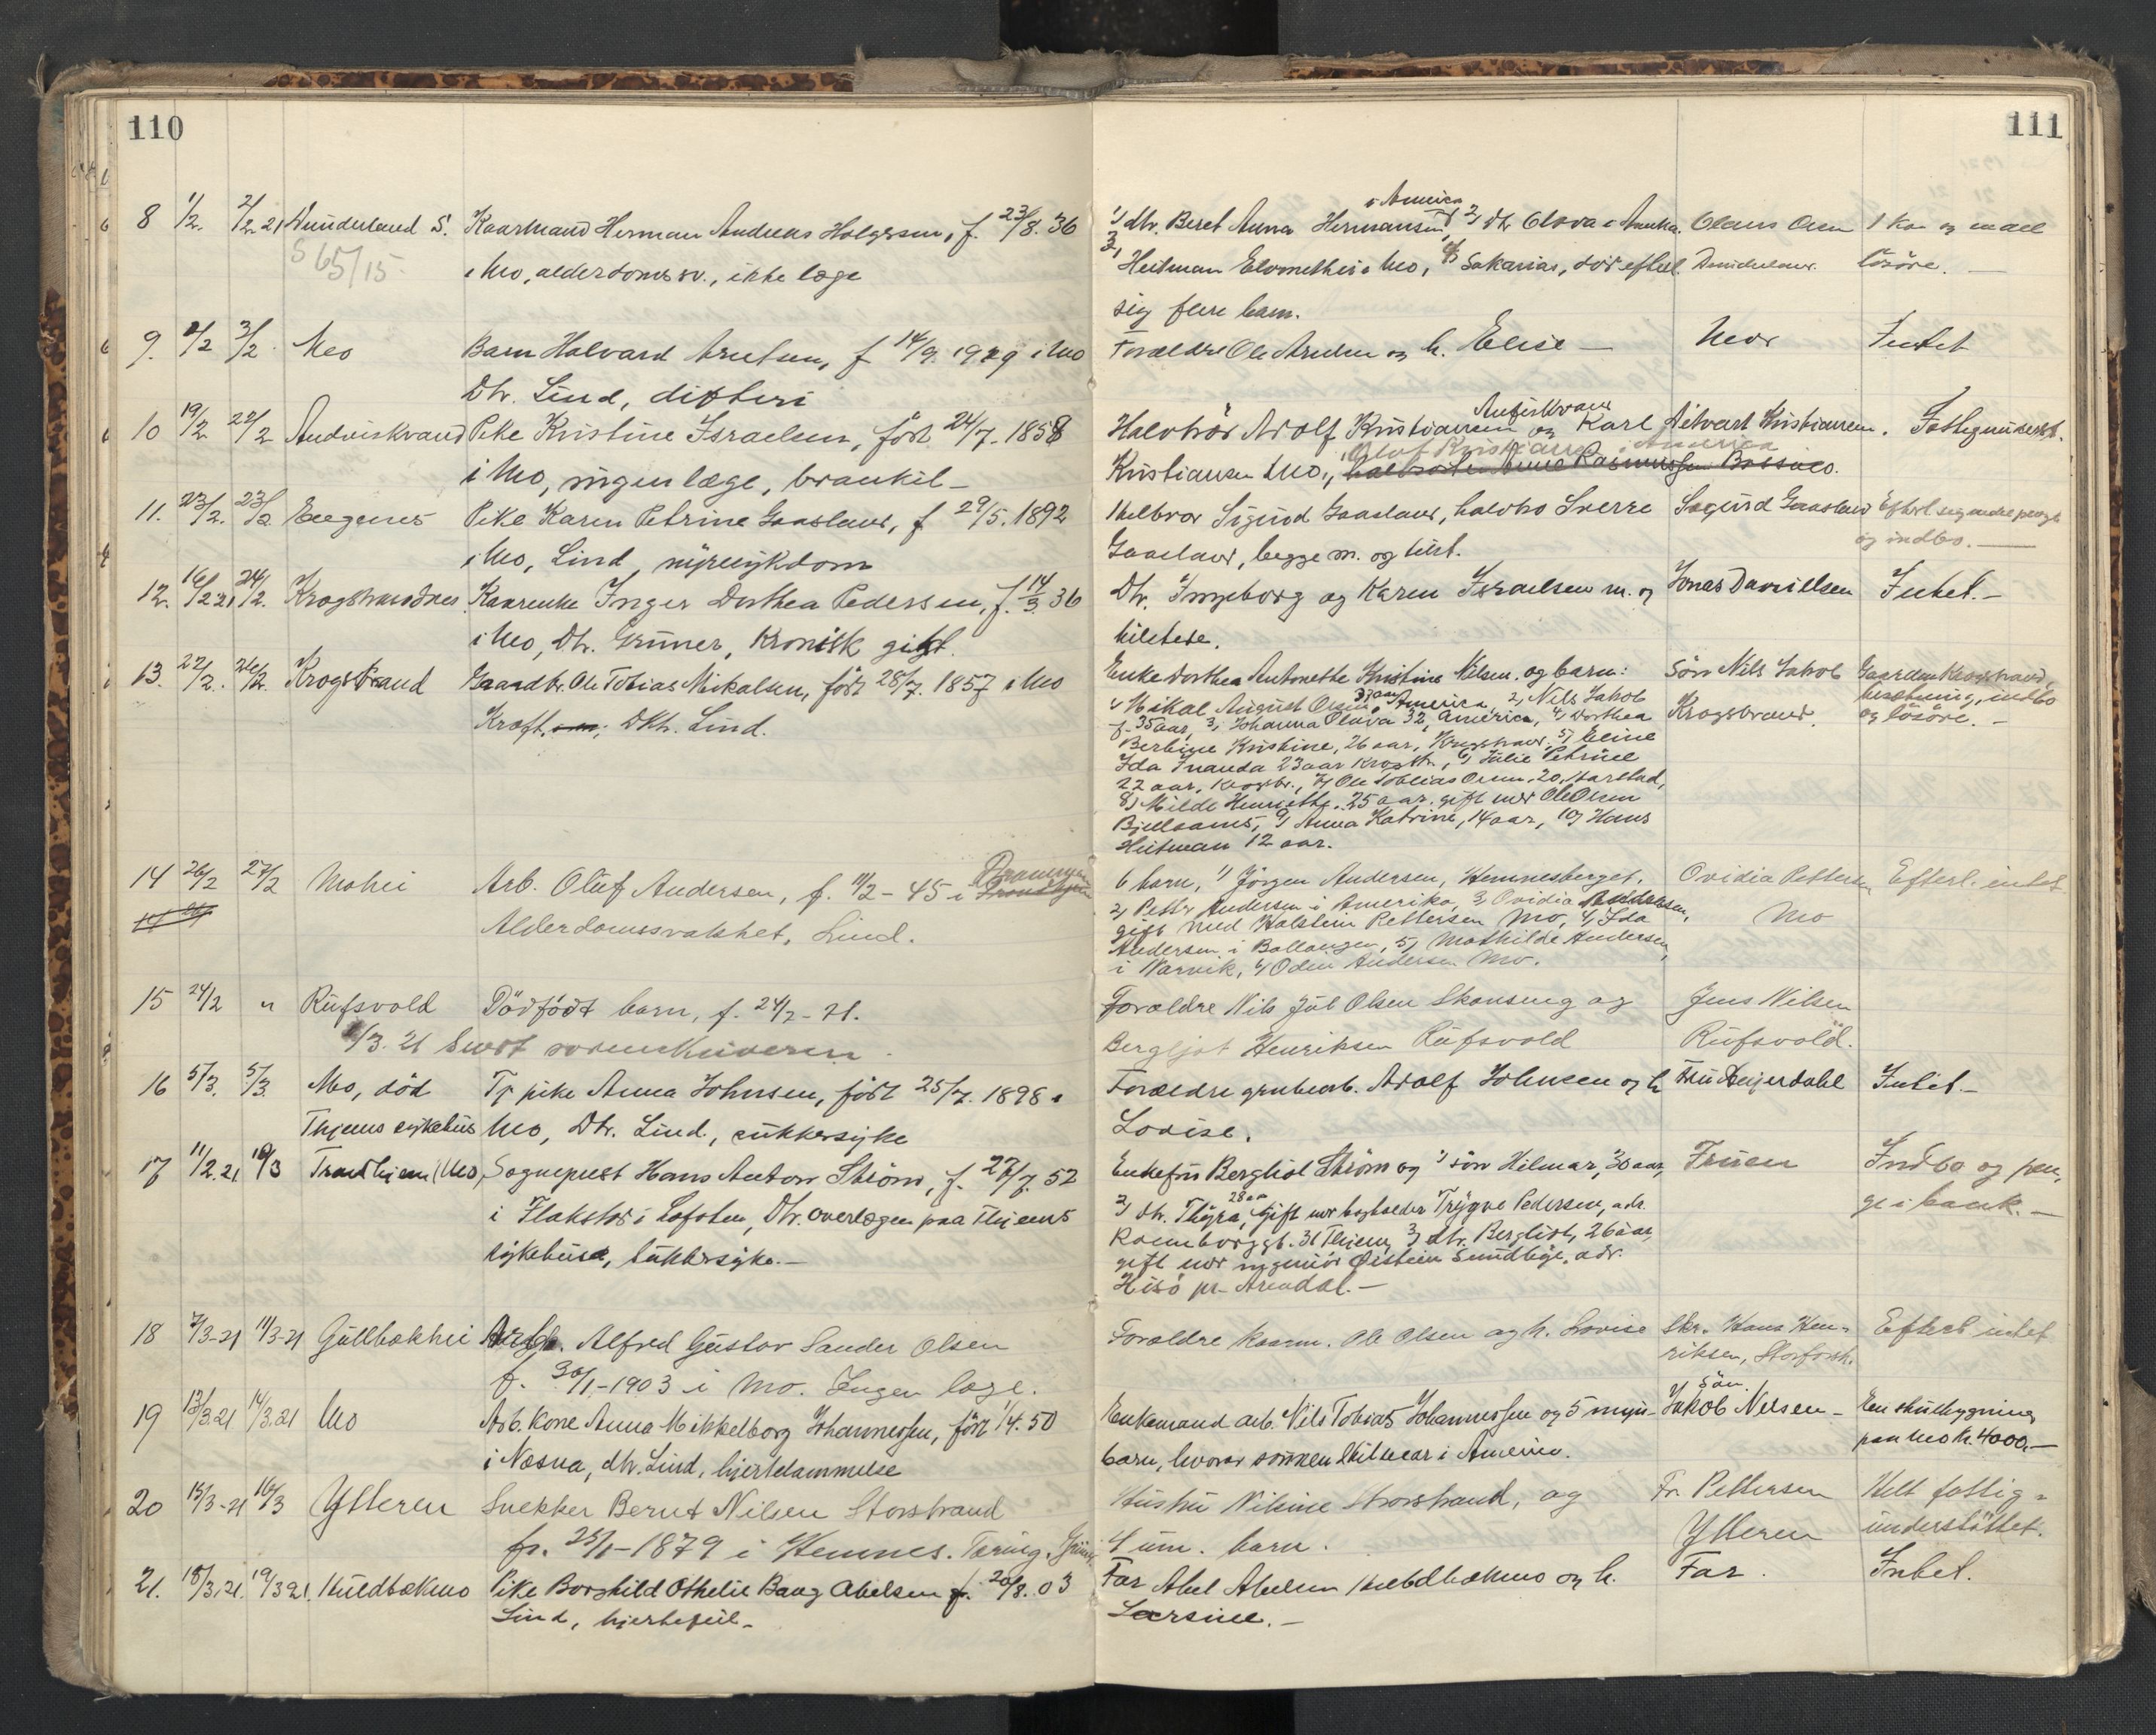 110
8 1/2. 2/2 21 Dunderland S. Kaarmand Herman Andreas Holgersen, f. 23/8. 36
S 65/15
i Mo, alderdomssv., ikke læge
9. 2/2 3/2 Mo Barn Halvard Arntsen, f 14/9. 1919 i Mo
Dr. Lind, difteri
10 19/2 22/2 Andviskvand Pike Kristine Israelsen, født 24/7. 1858
i Mo, ingen læge,
11. 23/2. 23/2 Engenes Pike Karen Petrine Gaasland, f 29/5. 1892
i Mo, Lind, nyresykdom
12. 16/2 21, 24/2. Krogstrandnes Kaarenke Inger Dorthea Pedersen, f. 14/3 36
i Mo, Dr. Grüner, kronisk gigt.
13. 22/2. 26/2. Krogstrand Gaardbr. Ole Tobias Mikalsen, født 28/7. 1857 i Mo
Kræft, Dktr. Lind.
14 26/2 27/2 Mohei Arb. Oluf Andersen, f. 11/2 - 45 i Trondhjem
Alderdomssvakhet, Lind.
15 24/2 " Rufsvold Dödfödt barn, f. 24/2 - 21.
/3. 21 Sendt
16 5/3. 5/3. Mo, död Tj pike Anna Johnsen, født 25/7. 1898 i
Thjems sykehus Mo, Dr. Lind, sukkersyke
17 11/2. 21 10/3 Trondhjem (Mo) Sogneprest Hans Anton Ström, f. 27/7. 52
i Flakstad i Lofoten, Dr. overlægen paa Thjems
sykehuse, sukkersyke. —
18 7/3-21 11/3-21 Gullbækhei Alfred Gustav Sander Olsen
f. 30/1 - 1903 i Mo. Ingen læge.
19 13/3.21 14/3.21 Mo Arb. kone Anna Mikkelborg Johannessen, født 1/4. 50
i Næsna, dr. Lind, hjertelammelse
20 13/3-21 16/3 Ytteren Snekker Bernt Nilsen Storstrand
f. 25/1 - 1879 i Hemnes. Tæring. Grüner
21. 18/3.21. 19/3 21. Kvedbækmo Pike Borghild Othelie Bang Abelsen f. 20/8. 03
Lind, hjertefeil.
111
1) dtr. Beret Anna Hermansen i America 2) dtr Olova i Amerika. Olaus Olsen 1 ko og endel
3) Heitman i Mo, 4) Sakarias, död efterl. Dunderland. lösöre. —
sig flere barn.
Forældre Ole Arntsen og h. Elise — Mor Intet
Halvbrör Adolf Kristiansen Andfiskvand og Karl Kristiansen. Fattigunderst.
Olof Kristiansen i America
Kristiansen Mo, halvsöster Anna Rasmussen Bossmo.
Helbror Sigurd Gaasland, halvbro Sverre Sigurd Gaasland Efterl. sig endel penge
Gaasland, begge m. og tilst. og indbo. —
Dtr. Ingeborg og Karen Israelsen m. og Jonas Danielsen Intet. —
tilstede.
Enke Dorthea Antonette Kristine Nilsen. og barn: Sön Nils Jakob Gaarden Krogstrand,
1) Mikal August Olsen, 37 aar America, 2) Nils Jakob Krogstrand. besætning, indbo
f. 35 aar, 3) Johanna Olava 32, America, 4) Dorthea og lösöre. —
Berbine Kristine, 26 aar, Krogstrand, 5) Eline
Ida Inanda 23 aar Krogstr., 6) Julie Petrine
22 aar, Krogstr., 7) Ole Tobias Olsen, 20, Harstad,
8) Milde Henriette, 25 aar, gift med Ole Olsen
Bjellaanes, 9) Anna Katrine, 14 aar, 10) Hans
Heitman 12 aar.
6 barn, 1) Jörgen Andersen, Hemnesberget, Ovidia Pettersen Efterl. intet
2) Petter Andersen i Amerika, 3) Ovidia Andersen, Mo
gift med Halstein Pettersen Mo, 4) Ida
Andersen i Ballangen, 5) Mathilde Andersen,
i Narvik, 6) Odin Andersen Mo.
Forældre Nils Jul Olsen Skonseng og Jens Nilsen
Bergljot Henriksen Rufsvold Rufsvold.
Forældre grubearb. Adolf Johnsen og h. Fru Meyerdahl Intet. —
Lovise.
Enkefru Bergliot Ström og 1) sön Hilmar, 30 aar, Fruen Indbo og pen-
2) dtr. Thyra, 28 aar, gift med bagholder Trygve Pedersen, adr. ge i bank. —
Rosenborggt. 31 Thjem, 3) dtr. Bergliot, 26 aar,
gift med ingeniör Öistein Sundbye, adr.
Hisö pr. Arendal. —
Forældre kaarm. Ole Olsen og h. Lovise Skr. Hans Hen- Efterl intet
riksen, Storforsh.
Enkemand arb. Nils Tobias Johannessen og 5 myn. Sön Jakob Nilsen — En skutbygning
barn, hvorav sönnen Hilmar i America. paa Mo kr. 4000. —
Hustru Nilsine Storstrand, og Fr. Pettersen Helt fattig-
4 um. barn. Ytteren understöttet.
Far Abel Abelsen Kvedbækmo og h. Far. Intet.
Larsine. —